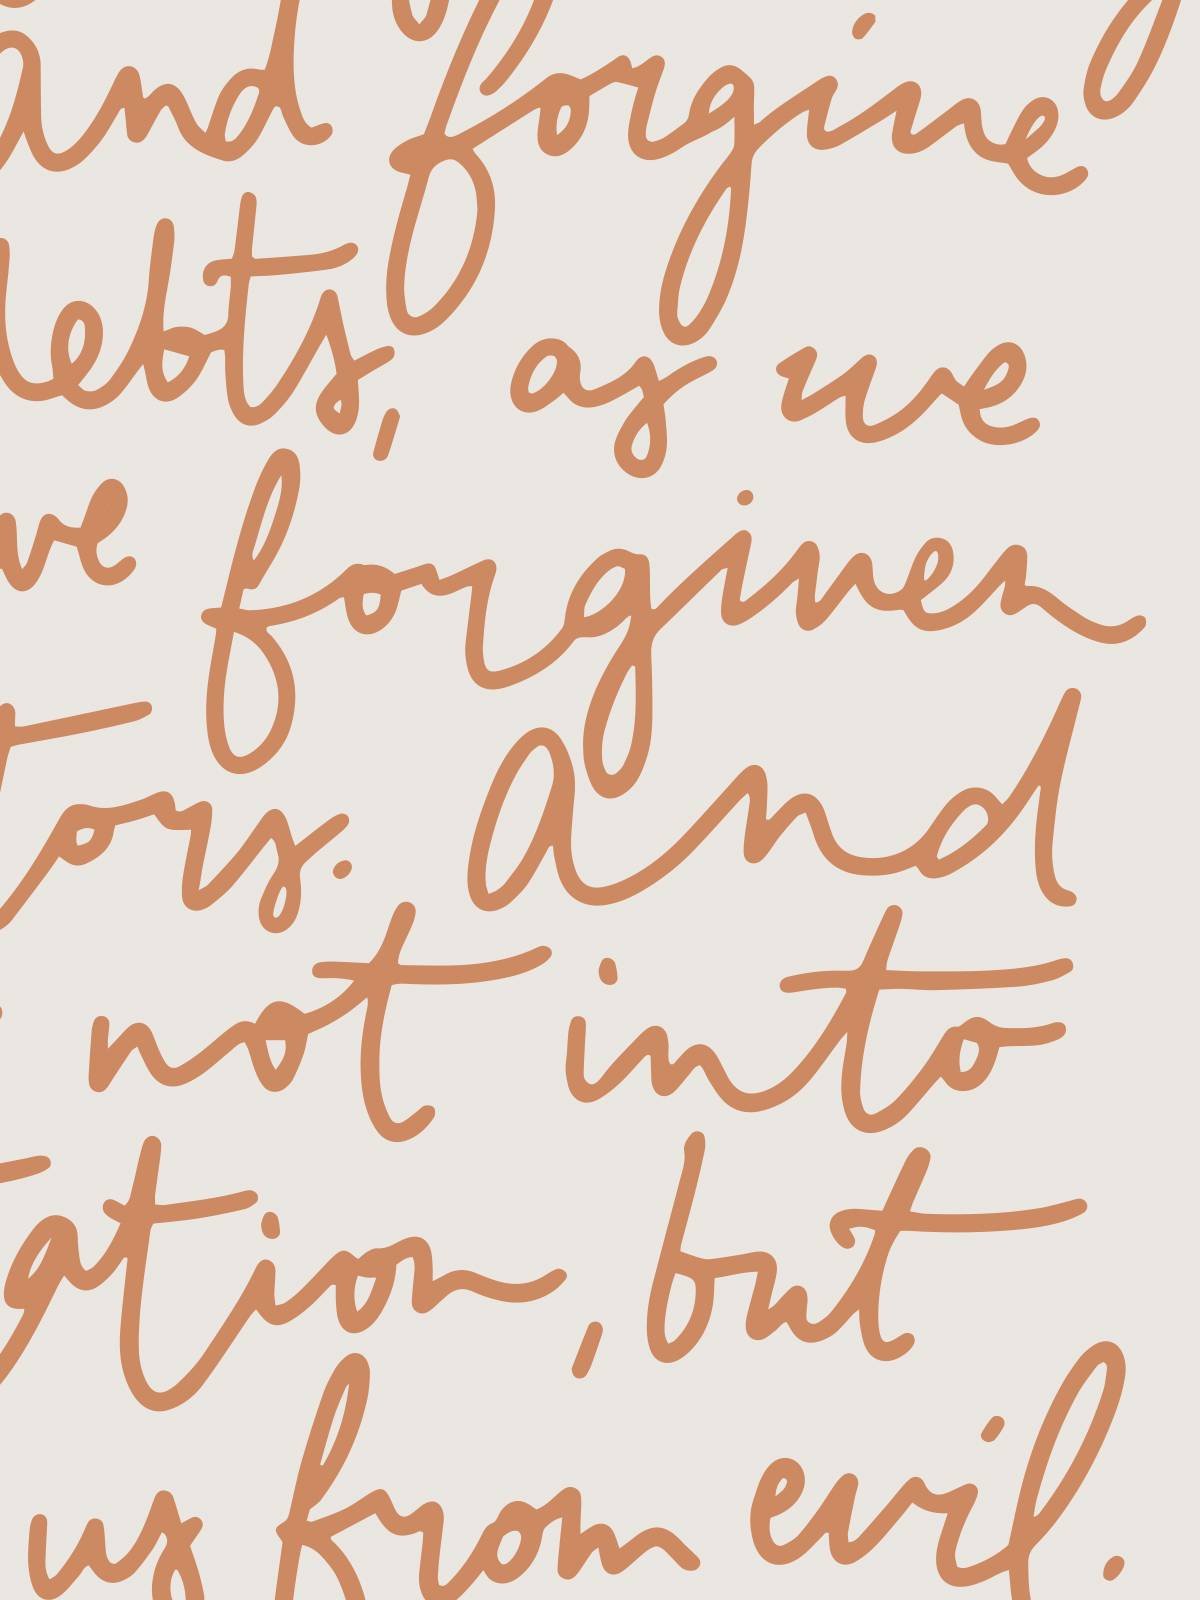 and forgive
debts, as we
ve forgiven
tors. And
not into
tation, but
us from evil.